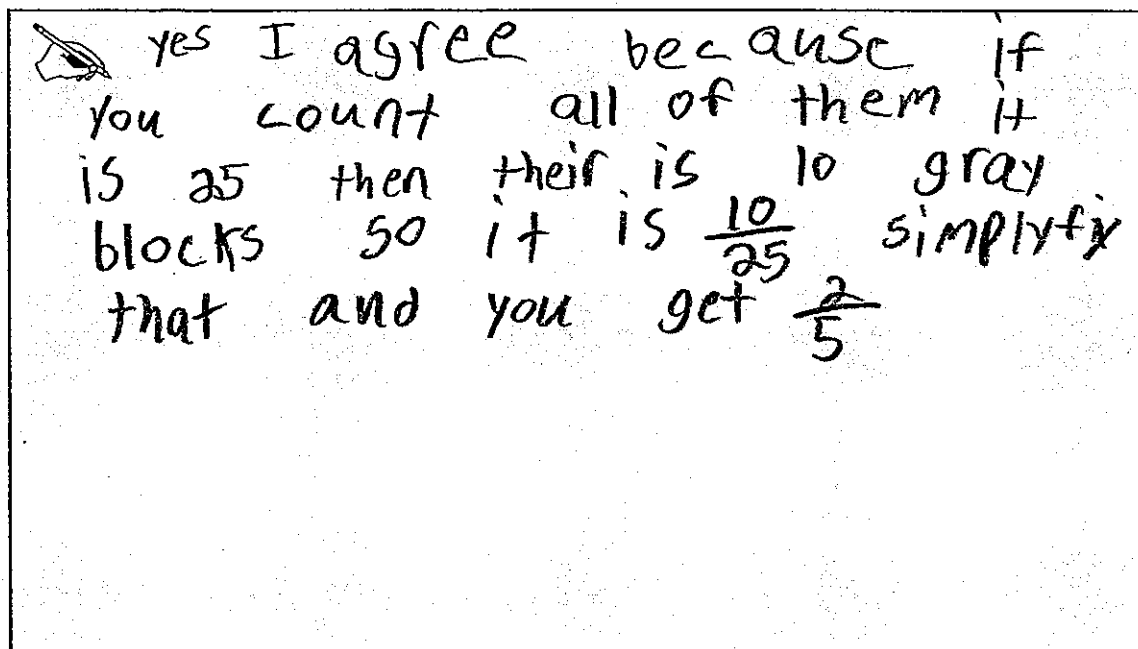 yes I agree because if
you count all of them it
is 25 then their is 10 gray
blocks so it is 10/25 simplyfiy
that and you get 2/5